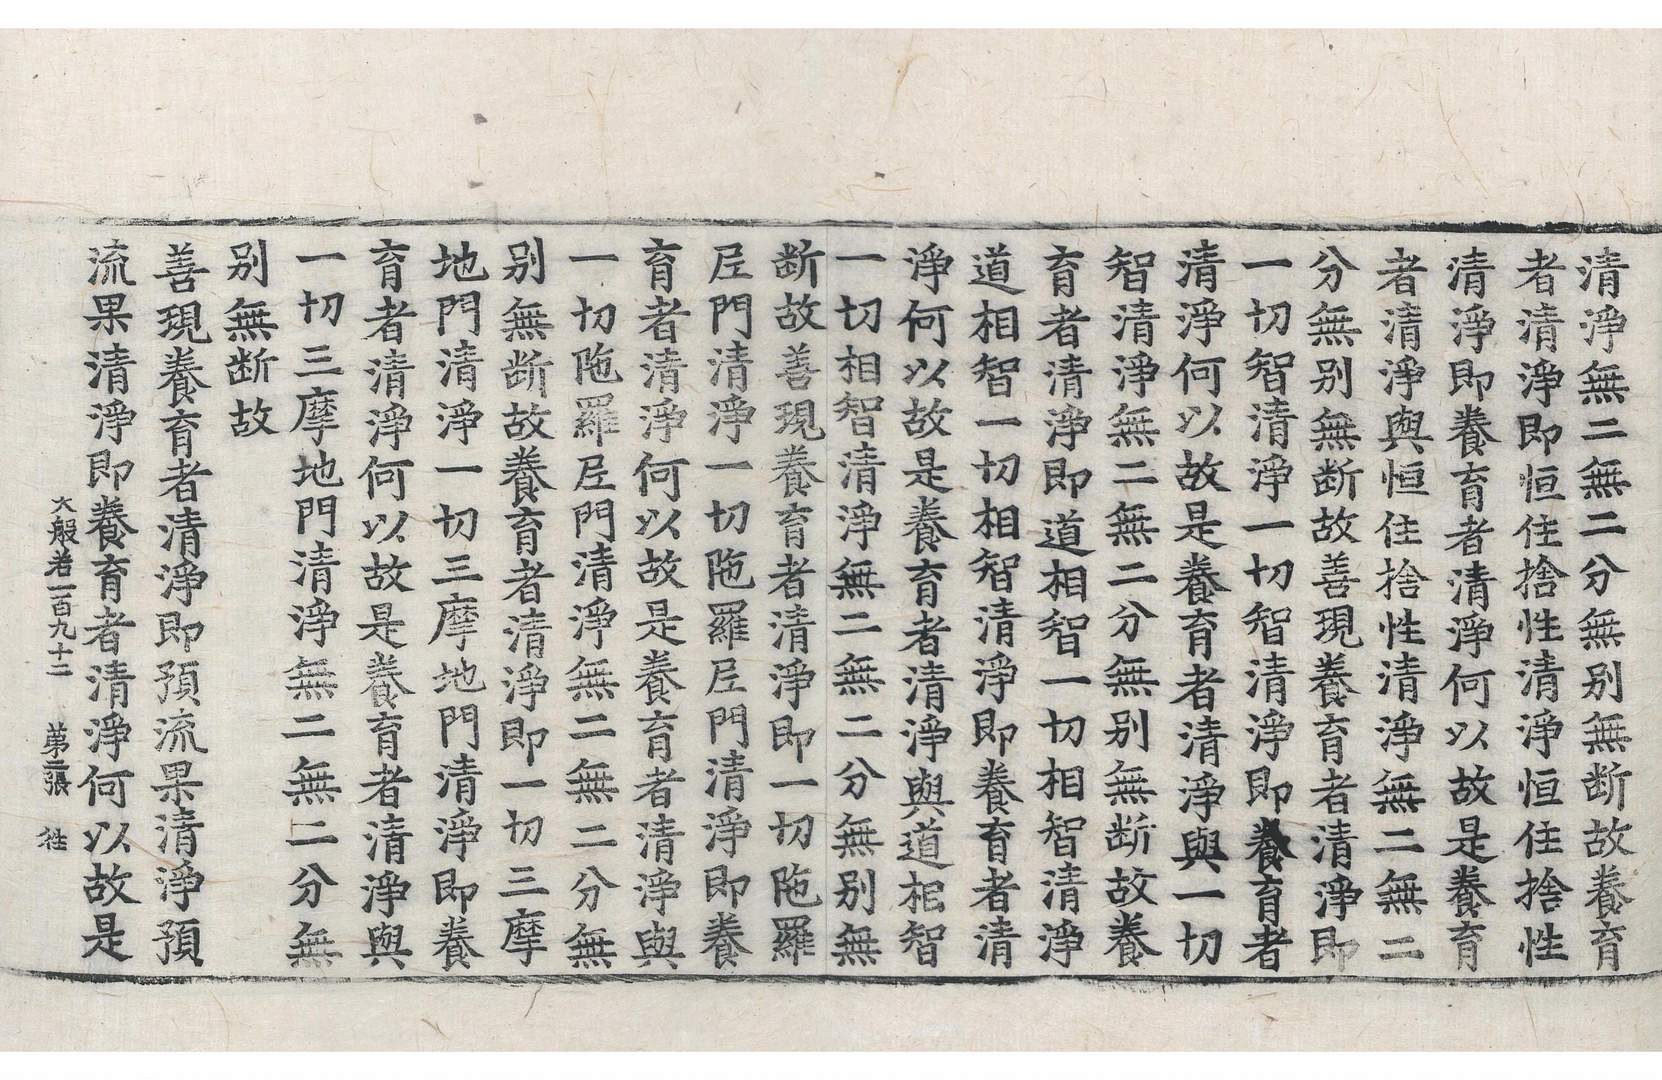 清淨無二無二分無別無断故養育
者清淨即恒住捨性清淨恒住捨性
清淨即養育者清淨何以故是養育
者清淨與恒住捨性清淨無二無二
分無別無断故善現養育者清淨即
一切智清淨一切智清淨即養育者
清淨何以故是養育者清淨與一切
智清淨無二無二分無別無断故養
育者清淨即道相智一切相智清淨
道相智一切相智清淨即養育者清
淨何以故是養育者清淨與道相智
一切相智清淨無二無二分無別無
断故善現養育者清淨即一切陁羅
尼門清淨一切陁羅尼門清淨即養
育者清淨何以故是養育者清淨與
一切陁羅尼門清淨無二無二分無
別無断故養育者清淨即一切三摩
地門清淨一切三摩地門清淨即養
育者清淨何以故是養育者清淨與
一切三摩地門清淨無二無二分無
別無断故
善現養育者清淨即預流果清淨預
流果清淨即養育者清淨何以故是
大般若一百九十二 第二張 往